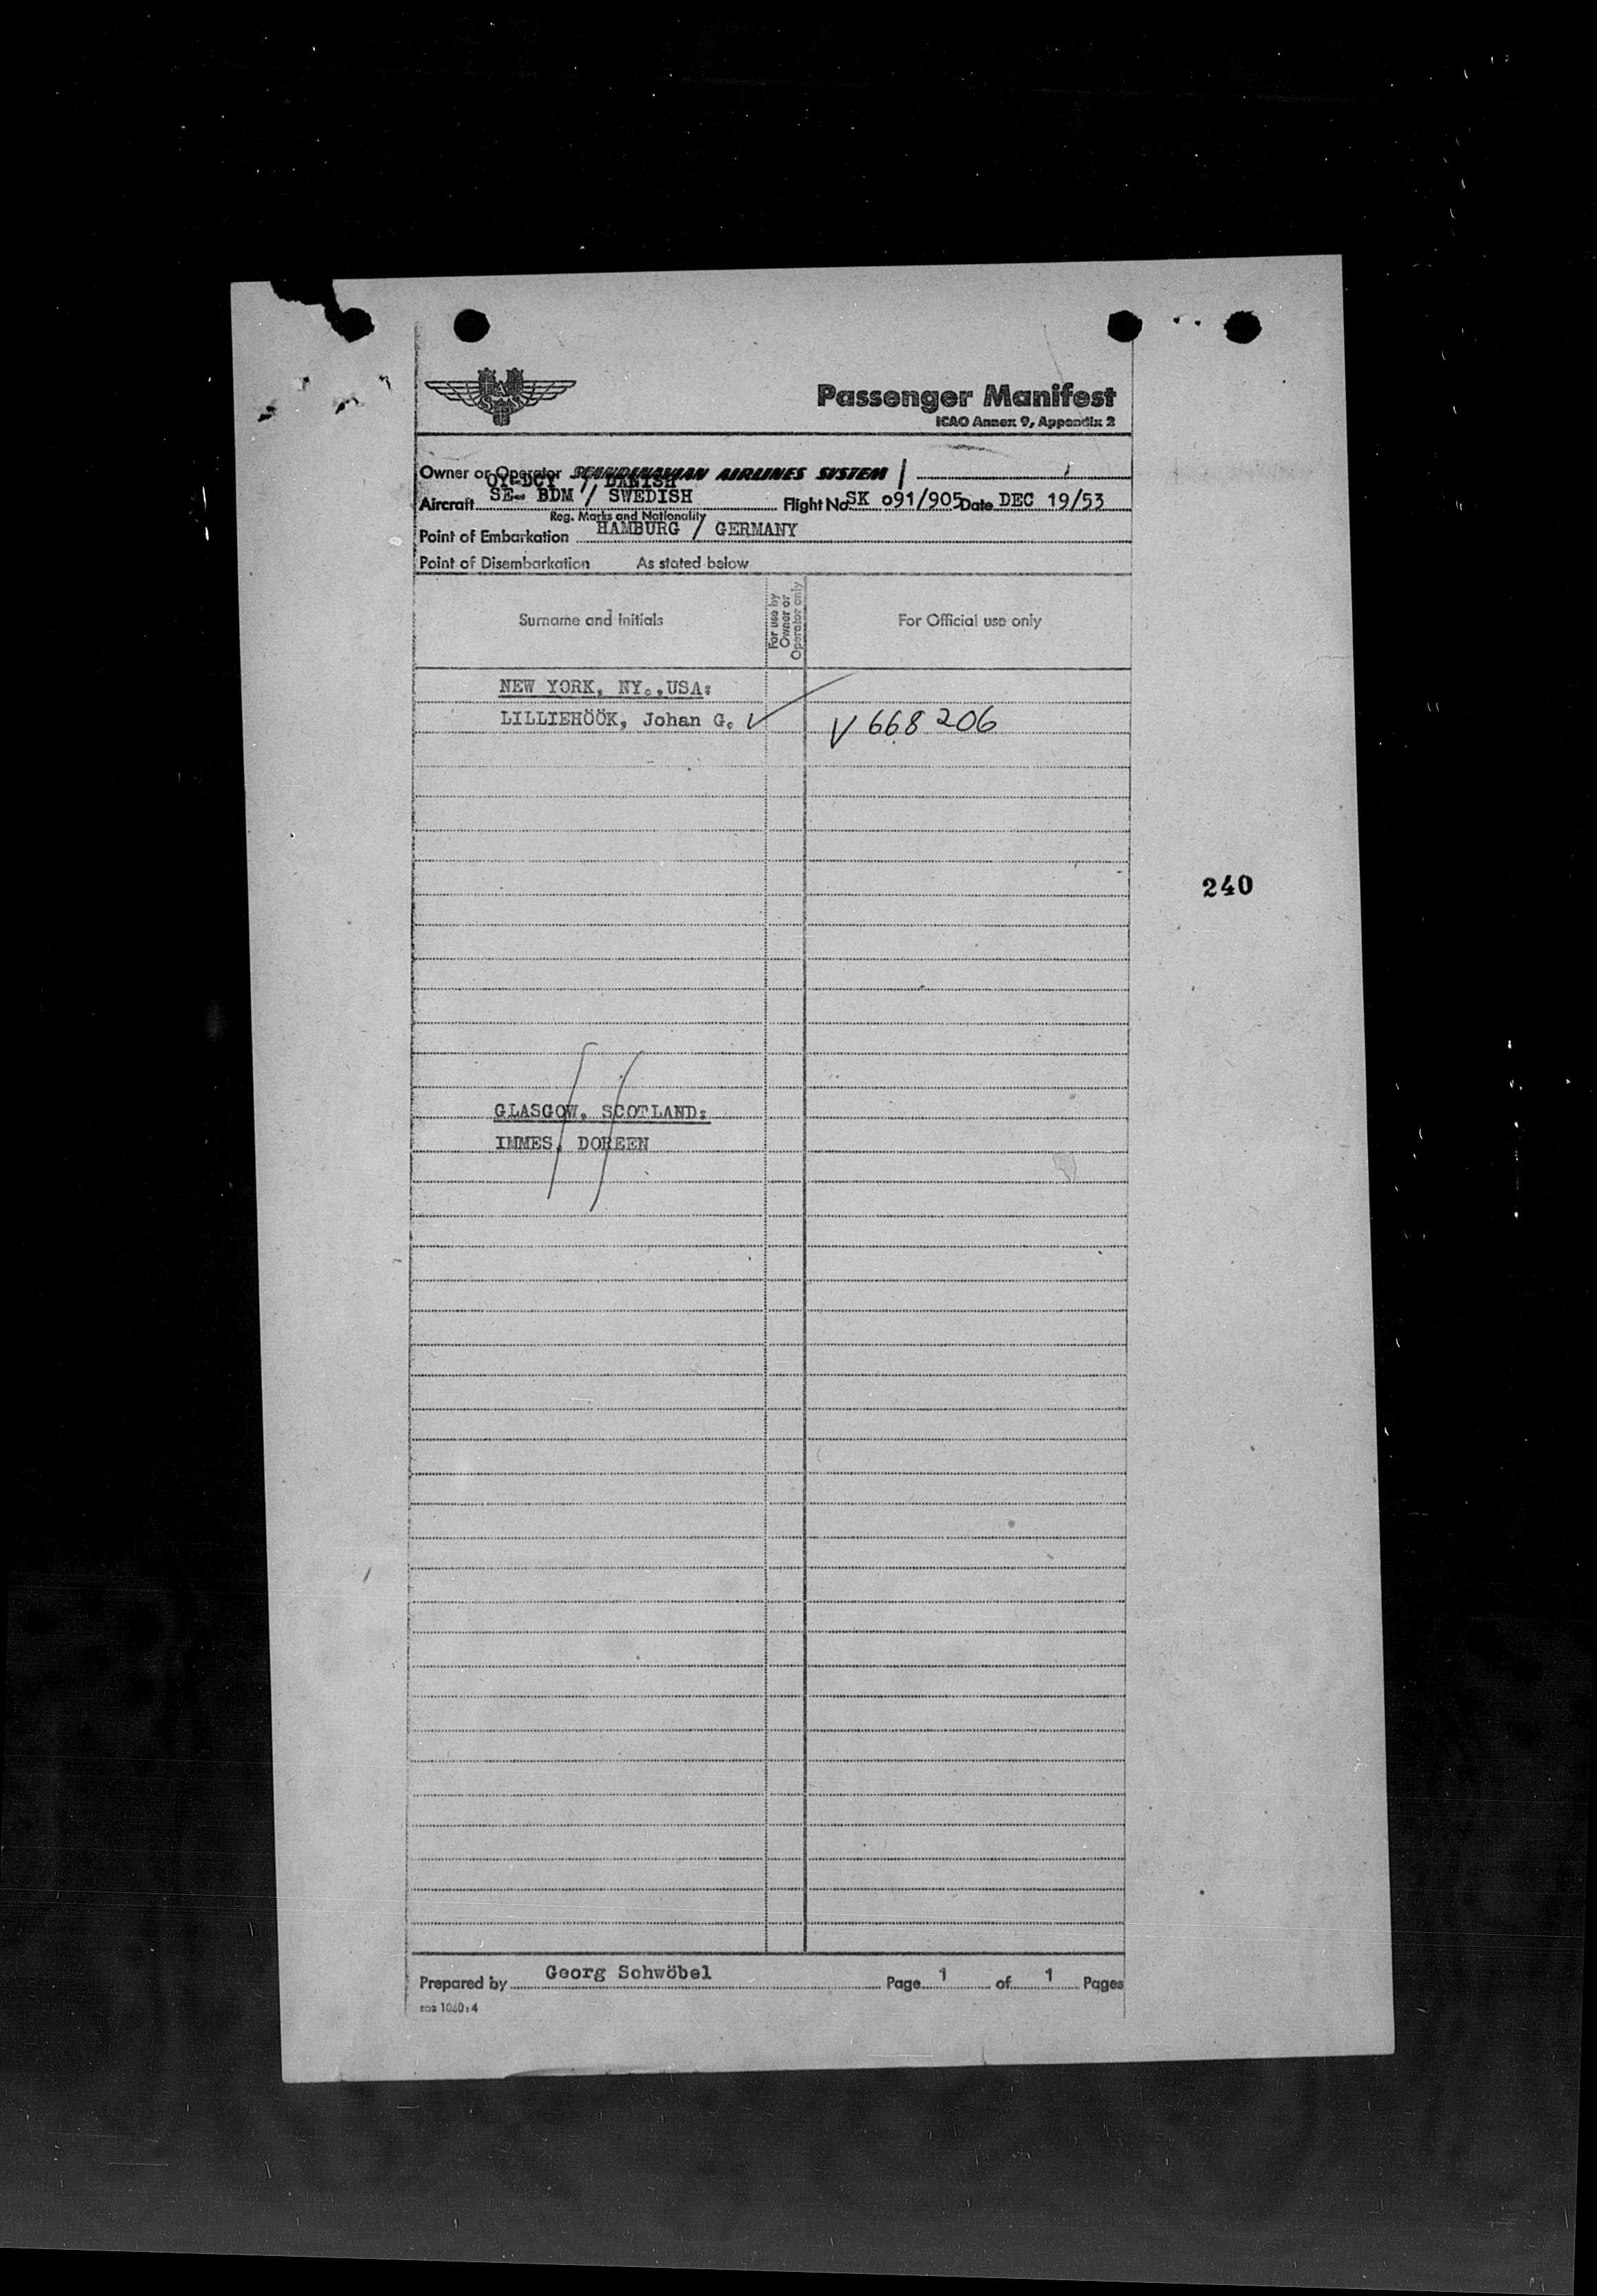 SAS
Passenger Manifest
ICAO Annex 9, Appendix 2
Owner or Operator SCANDINAVIAN AIRLINES SYSTEM
OY-DCY / DANISH
Aircraft SE- BDM / SWEDISH Flight No SK 091/905 Date DEC 19/53
Reg. Marks and Nationality
Point of Embarkation HAMBURG / GERMANY
Point of Disembarkation As stated below
Surname and Initials
For use by
Owner or
Operator only
For Official use only
NEW YORK, NY.,USA:
LILLIEHÖÖK, Johan G. V 668206
240
GLASGOW, SCOTLAND:
IMMES, DOREEN
Prepared by Georg Schwöbel Page 1 of 1 Pages
1060:4